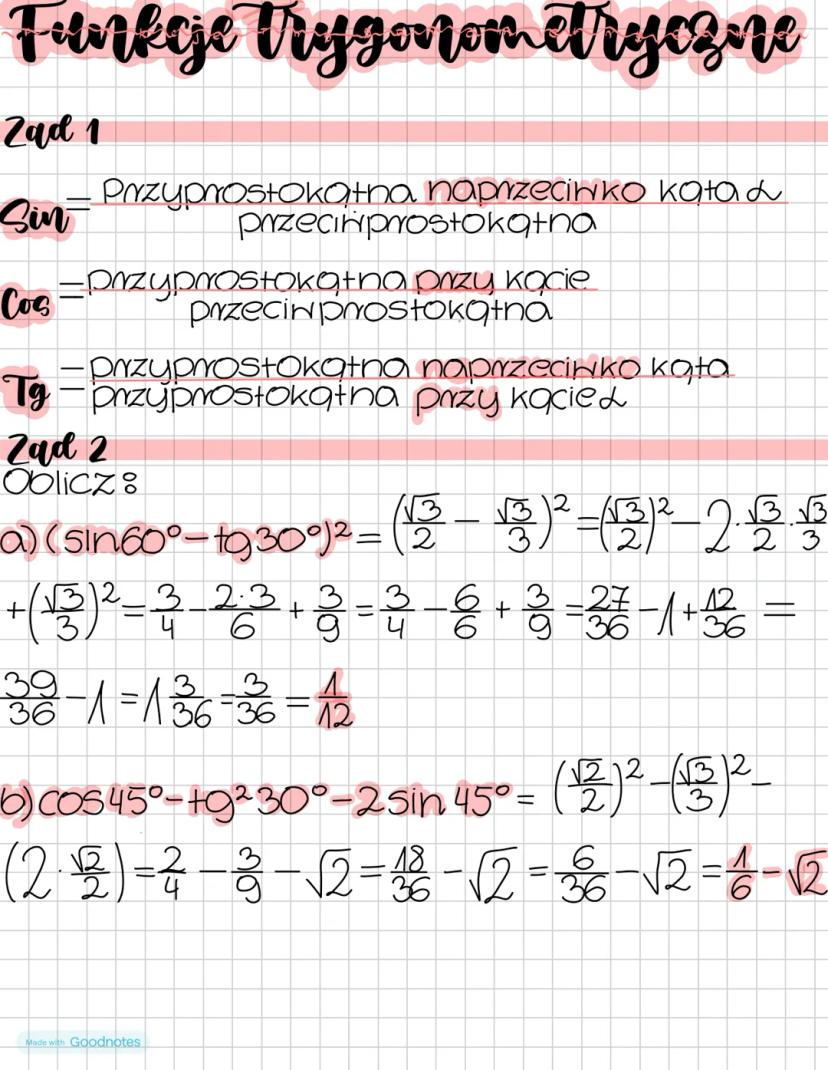 Funkcje trygonometryczne
Zad 1
Sin = Przyprostokątna naprzeciwko kąta α
przeciwprostokątna
Cos = przyprostokątna przy kącie
przeciwprostokątna
Tg = przyprostokątna naprzeciwko kąta
przyprostokątna przy kącie α
Zad 2
Oblicz:
a) (sin60° - tg30°)² = (√3/2 - √3/3)² = (√3/2)² - 2·√3/2·√3/3
+ (√3/3)² = 3/4 - 2·3/6 + 3/9 = 3/4 - 6/6 + 3/9 = 27/36 - 1 + 12/36 =
39/36 - 1 = 1 3/36 = 3/36 = 1/12
b) cos45° - tg²30° - 2sin 45° = (√2/2)² - (√3/3)² -
(2·√2/2) = 2/4 - 3/9 - √2 = 18/36 - √2 = 6/36 - √2 = 1/6 - √2
Made with Goodnotes